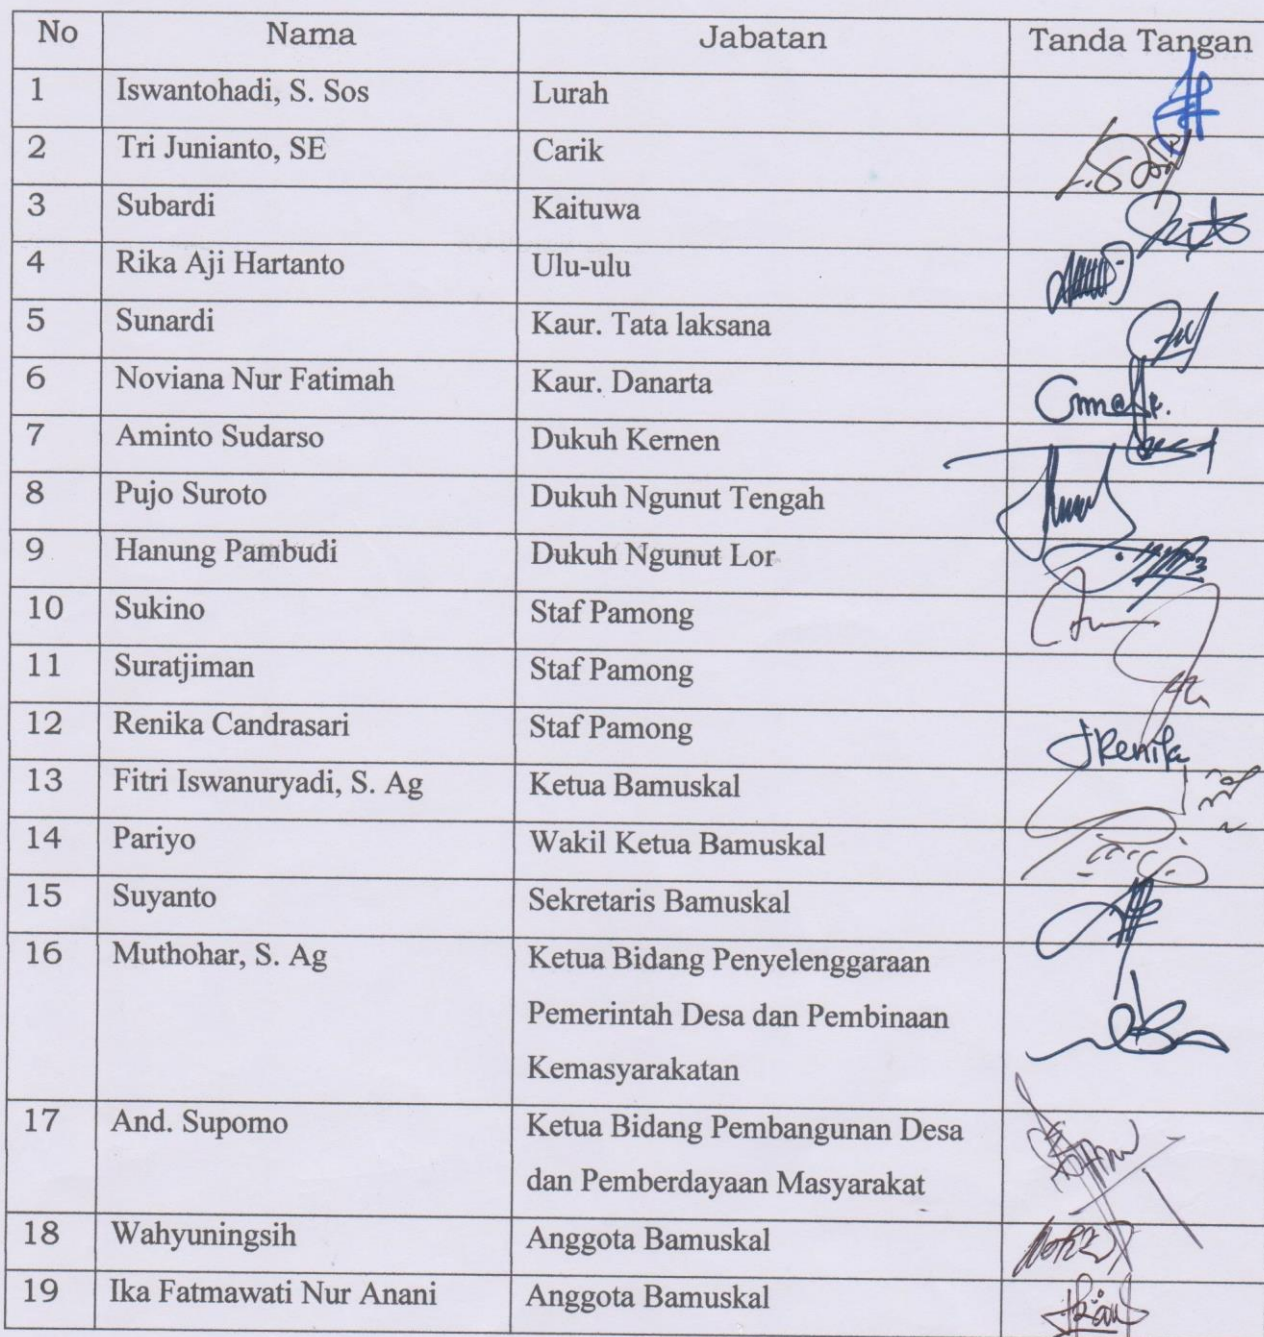 No Nama Jabatan Tanda Tangan
1 Iswantohadi, S. Sos Lurah
2 Tri Junianto, SE Carik
3 Subardi Kaituwa
4 Rika Aji Hartanto Ulu-ulu
5 Sunardi Kaur. Tata laksana
6 Noviana Nur Fatimah Kaur. Danarta
7 Aminto Sudarso Dukuh Kernen
8 Pujo Suroto Dukuh Ngunut Tengah
9 Hanung Pambudi Dukuh Ngunut Lor
10 Sukino Staf Pamong
11 Suratjiman Staf Pamong
12 Renika Candrasari Staf Pamong Renika
13 Fitri Iswanuryadi, S. Ag Ketua Bamuskal
14 Pariyo Wakil Ketua Bamuskal
15 Suyanto Sekretaris Bamuskal
16 Muthohar, S. Ag Ketua Bidang Penyelenggaraan
Pemerintah Desa dan Pembinaan
Kemasyarakatan
17 And. Supomo Ketua Bidang Pembangunan Desa
dan Pemberdayaan Masyarakat
18 Wahyuningsih Anggota Bamuskal
19 Ika Fatmawati Nur Anani Anggota Bamuskal